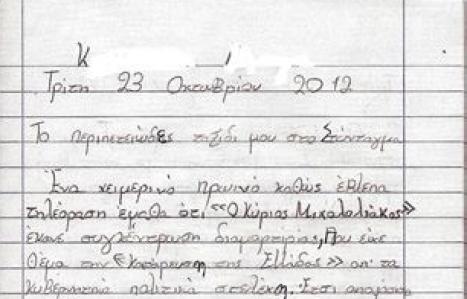 Κ
Τρίτη 23 Οκτωβρίου 2012
Το περιπετειώδες ταξίδι μου στο Σύνταγμα
Ένα χειμερινό πρωινό καθώς έβλεπα
τηλεόραση έμαθα ότι «Ο Κύριος Μιχαλολιάκος»
έκανε συγκέντρωση διαμαρτυρίας, που είχε
θέμα την «Κατάρρευση της Ελλάδας» απ' τα
κυβερνητικά πολιτικά στελέχη. Έτσι